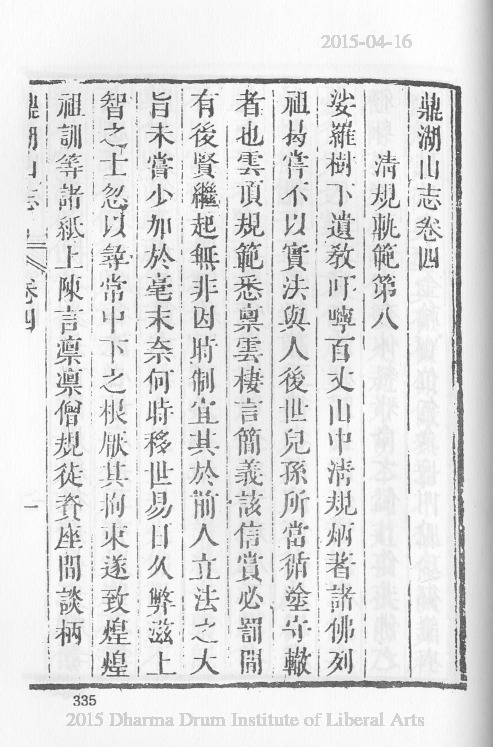 2015-04-16
鼎湖山志卷四
清規軌範第八
娑羅樹下遺教叮嚀百丈山中清規炳著諸佛列
祖曷嘗不以實法與人後世兒孫所當循塗守轍
者也雲頂規範悉稟雲棲言簡義該信賞必罰間
有後賢繼起無非因時制宜其於前人立法之大
旨未嘗少加於毫末奈何時移世易日久弊滋上
智之士忽以尋常中下之根厭其拘束遂致煌煌
祖訓等諸紙上陳言凜凜僧規徒資座間談柄
鼎湖山志 卷四 一
335
2015 Dharma Drum Institute of Liberal Arts